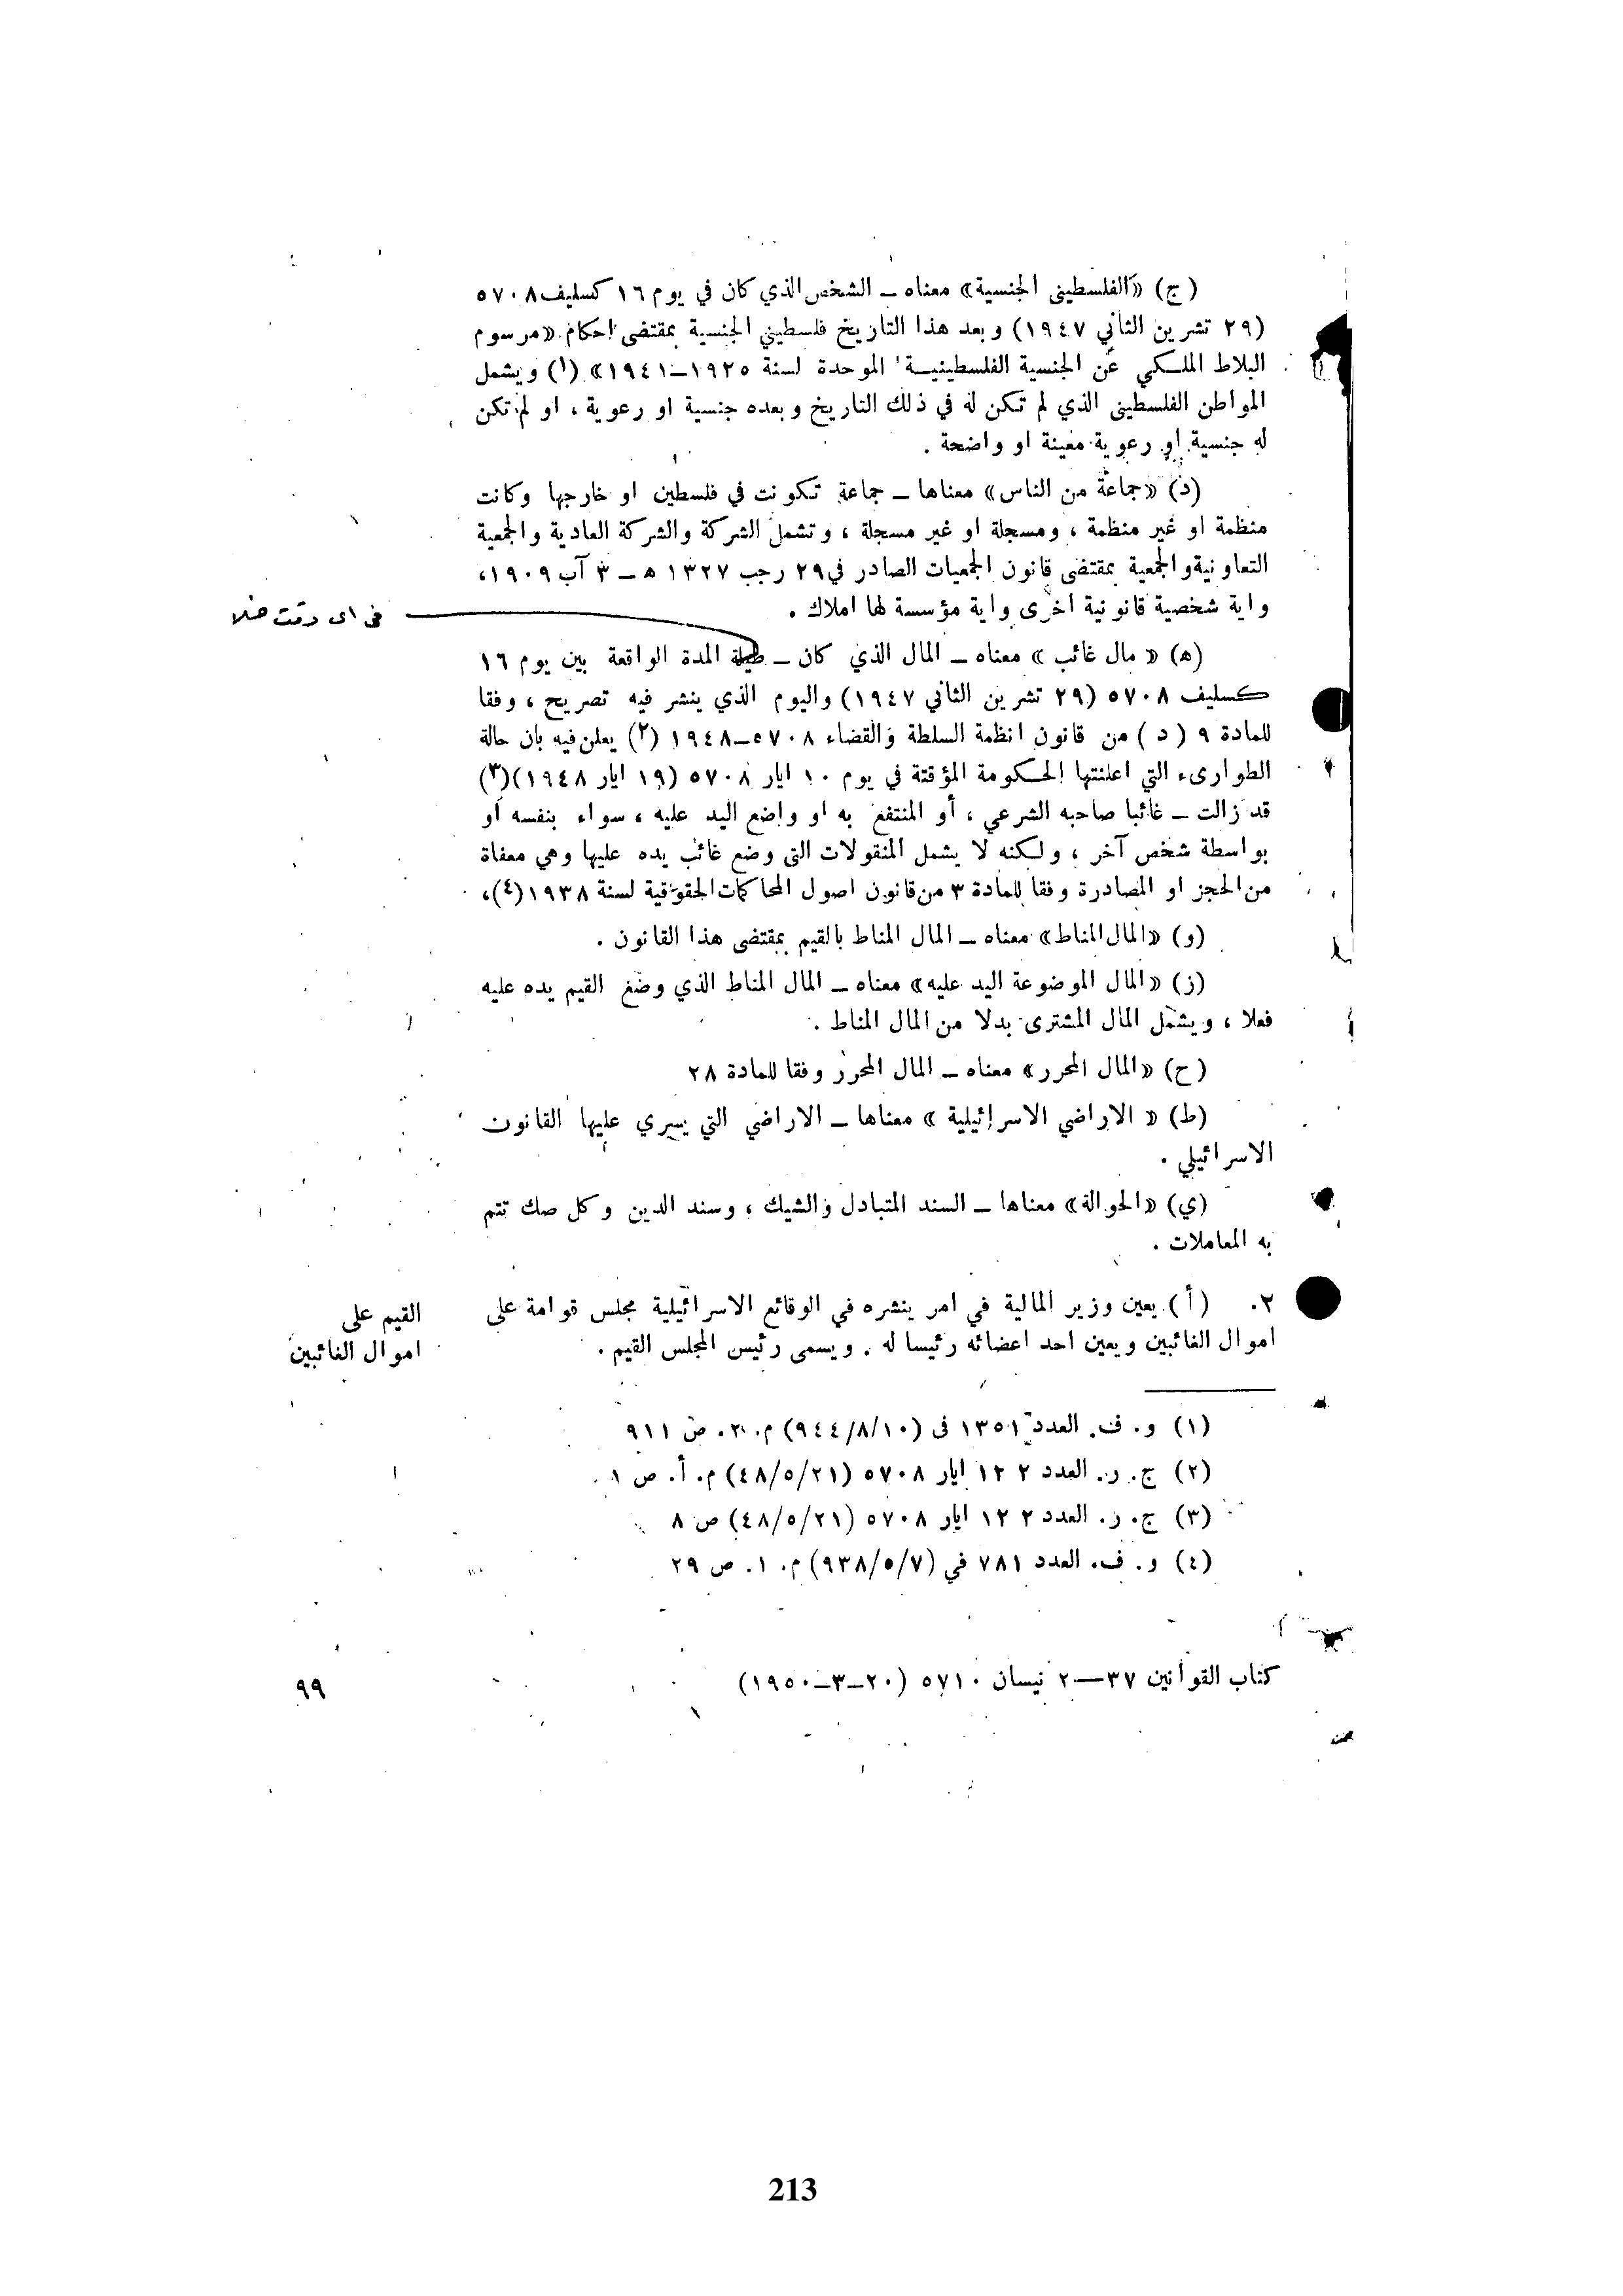 (ج) «الفلسطيني الجنسية» معناه – الشخص الذي كان في يوم ١٦ كسليف ٥٧٠٨
(٢٩ تشرين الثاني ١٩٤٧) وبعد هذا التاريخ فلسطيني الجنسية بمقتضى احكام «مرسوم
البلاط الملكي عن الجنسية الفلسطينية الموحدة لسنة ١٩٢٥–١٩٤١» (١) ويشمل
المواطن الفلسطيني الذي لم تكن له في ذلك التاريخ وبعده جنسية او رعوية ، او لم تكن
له جنسية او رعوية معينة او واضحة .
(د) «جماعة من الناس» معناها – جماعة تكونت في فلسطين او خارجها وكانت
منظمة او غير منظمة ، ومسجلة او غير مسجلة ، وتشمل الشركة والشركة العادية والجمعية
التعاونية والجمعية بمقتضى قانون الجمعيات الصادر في ٢٩ رجب ١٣٢٧ ه – ٣ آب ١٩٠٩،
واية شخصية قانونية اخرى واية مؤسسة لها املاك .
في اى وقت خلا
(ه) « مال غائب » معناه – المال الذي كان – طيلة المدة الواقعة بين يوم ١٦
كسليف ٥٧٠٨ (٢٩ تشرين الثاني ١٩٤٧) واليوم الذي ينشر فيه تصريح ، وفقا
للمادة ٩ (د) من قانون انظمة السلطة والقضاء ٥٧٠٨–١٩٤٨ (٢) يعلن فيه بان حالة
الطوارىء التي اعلنتها الحكومة المؤقتة في يوم ١٠ ايار ٥٧٠٨ (١٩ ايار ١٩٤٨)(٣)
قد زالت – غائبا صاحبه الشرعي ، أو المنتفع به او واضع اليد عليه ، سواء بنفسه أو
بواسطة شخص آخر ، ولكنه لا يشمل المنقولات التي وضع غائب يده عليها وهي معفاة
من الحجز او المصادرة وفقا للمادة ٣ من قانون اصول المحاكمات الحقوقية لسنة ١٩٣٨(٤)،
(و) «المال المناط» معناه – المال المناط بالقيم بمقتضى هذا القانون .
(ز) «المال الموضوعة اليد عليه» معناه – المال المناط الذي وضع القيم يده عليه
فعلا ، ويشمل المال المشترى بدلا من المال المناط .
(ح) «المال المحرر» معناه – المال المحرر وفقا للمادة ٢٨
(ط) « الاراضي الاسرائيلية » معناها – الاراضي التي يسري عليها القانون
الاسرائيلي .
(ي) «الحوالة» معناها – السند المتبادل والشيك ، وسند الدين وكل صك تتم
به المعاملات .
القيم على
اموال الغائبين
٢. (أ) يعين وزير المالية في امر ينشره في الوقائع الاسرائيلية مجلس قوامة على
اموال الغائبين ويعين احد اعضائه رئيسا له . ويسمى رئيس المجلس القيم .
(١) و. ف. العدد ١٣٥١ في (٩٤٤/٨/١٠) م. ٢. ص ٩١١
(٢) ج. ر. العدد ٢ ١٢ ايار ٥٧٠٨ (٤٨/٥/٢١) م. أ. ص ١
(٣) ج. ر. العدد ٢ ١٢ ايار ٥٧٠٨ (٤٨/٥/٢١) ص ٨
(٤) و. ف. العدد ٧٨١ في (٩٣٨/٥/٧) م. ١. ص ٢٩
كتاب القوانين ٣٧—٢ نيسان ٥٧١٠ (٢٠–٣–١٩٥٠)
٩٩
213